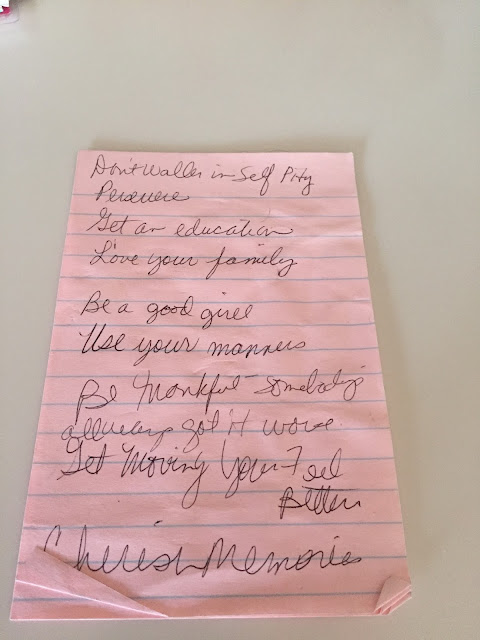 Don't Waller in Self Pity
Persevere
Get an education
Love your family
Be a good girl
Use your manners
Be thankful - somebody's
allways got it worse
Get Moving You'll Feel
Better
Cherish Memories